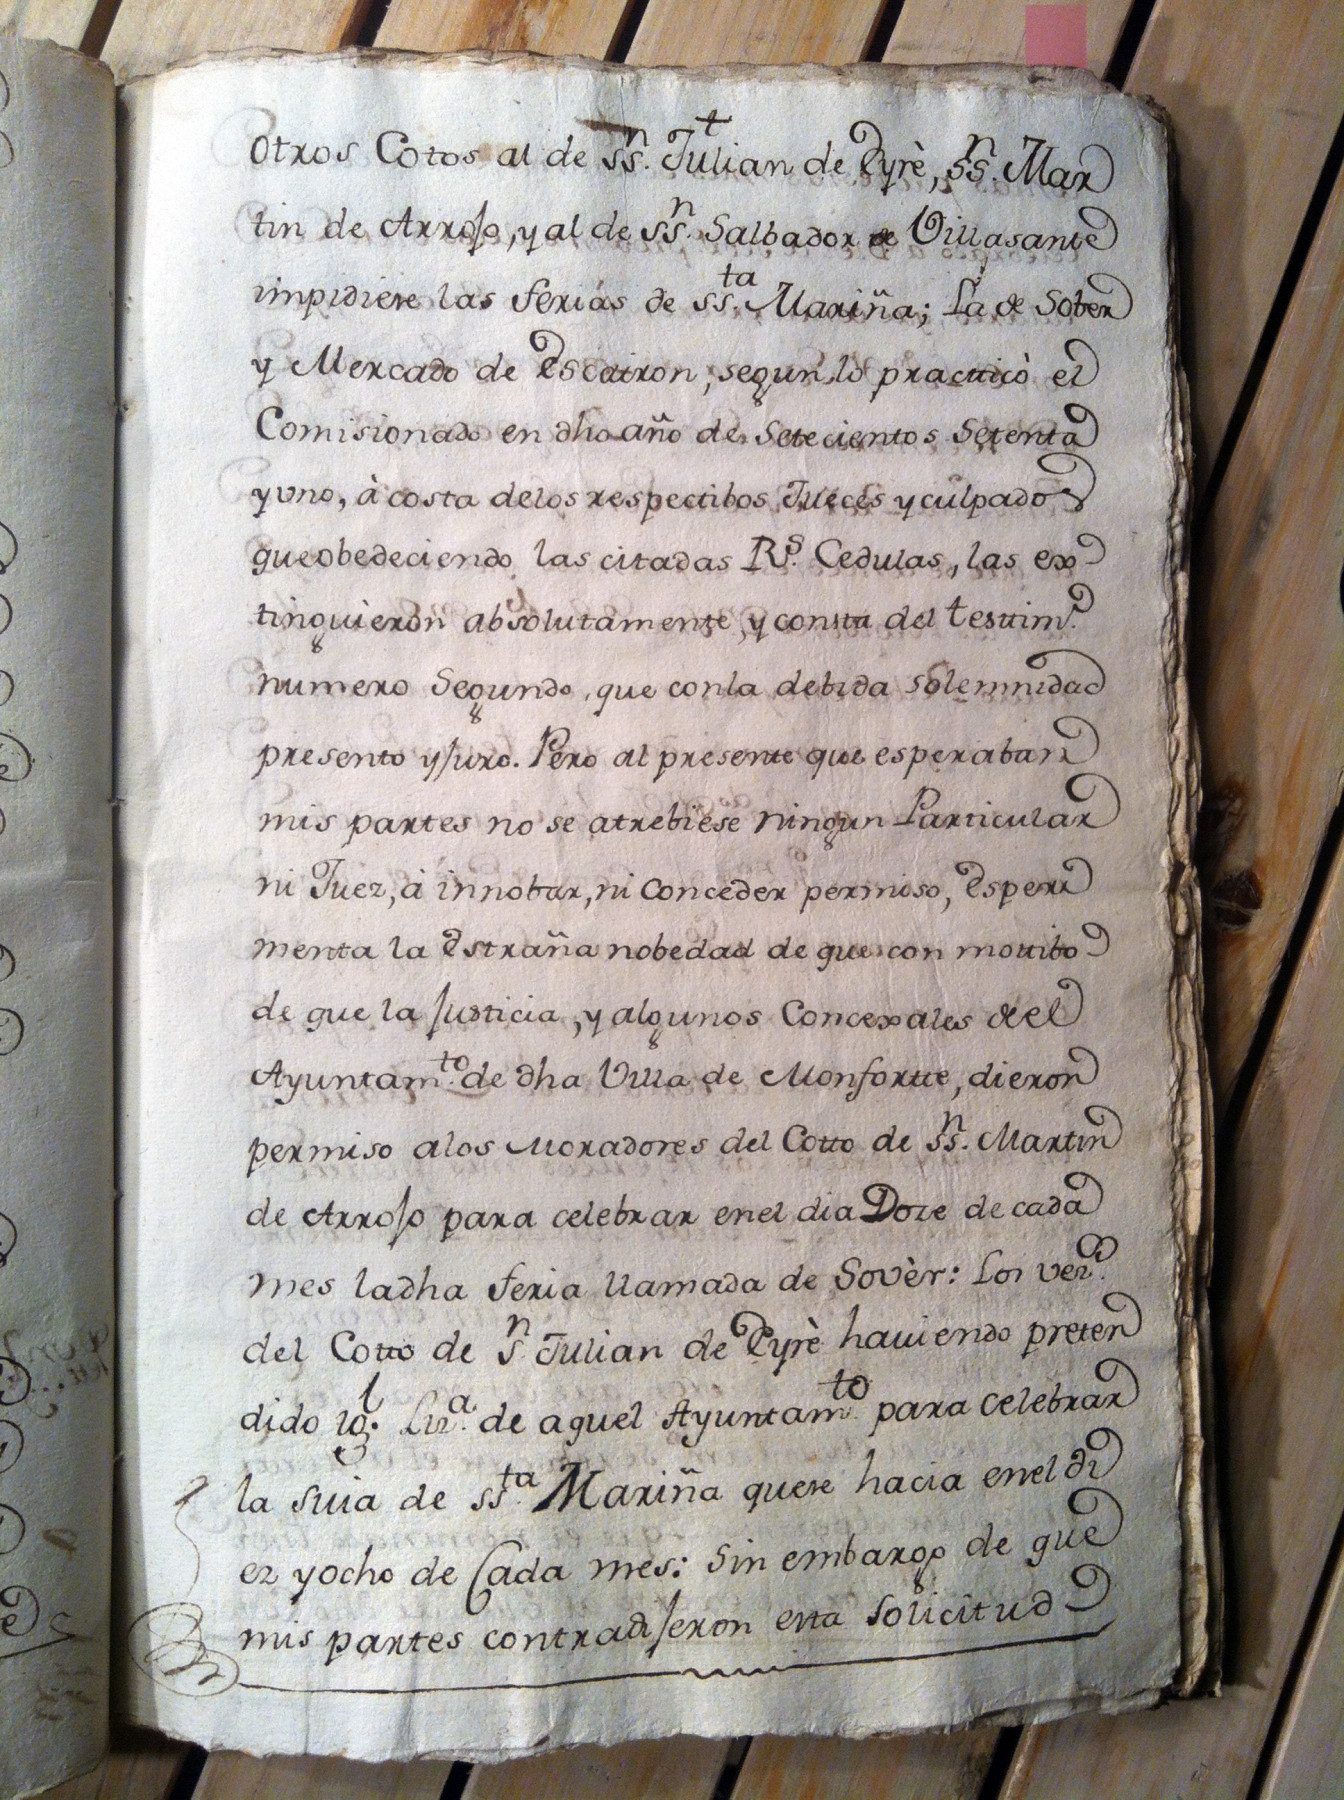 otros Cotos al de Ssn. Julian de Eyrè, Ssn. Mar
tin de Arrojo, y al de Ssn. Salbador de Villasante
impidiese las ferias de Ssta. Mariña; La de Sober
y Mercado de Escairon, segun lo practticò el
Comisionado en dho año de Setecientos Setenta
y uno, à costa delos respecttibos Jueces y culpados
que obedeciendo las citadas Rs. Cedulas, las ex
tinguieron absolutamente, y consta del testtimo.
numero Segundo, que conla debida solemnidad
presento y juro. Pero al presente que esperaban
mis partes no se atrebiese ningun Particular
ni Juez, à innobar, ni conceder permiso, Esperi
menta la Estraña nobedad de que con mottibo
de que la Justicia, y algunos Concexales del
Ayuntamto. de dha Villa de Monfortte, dieron
permiso alos Moradores del Cotto de Ssn. Martin
de Arrojo para celebrar enel dia Doze de cada
mes ladha feria llamada de Sovèr: Los vezos.
del Cotto de Sn Julian de Eyrè haviendo preten
dido igl. Liza. de aquel Ayuntamto. para celebrar
la suia de Ssta. Mariña quese hacia enel di
ez y ocho de Cada mes: Sin embargo de que
mis partes contradijeron esta solicitud